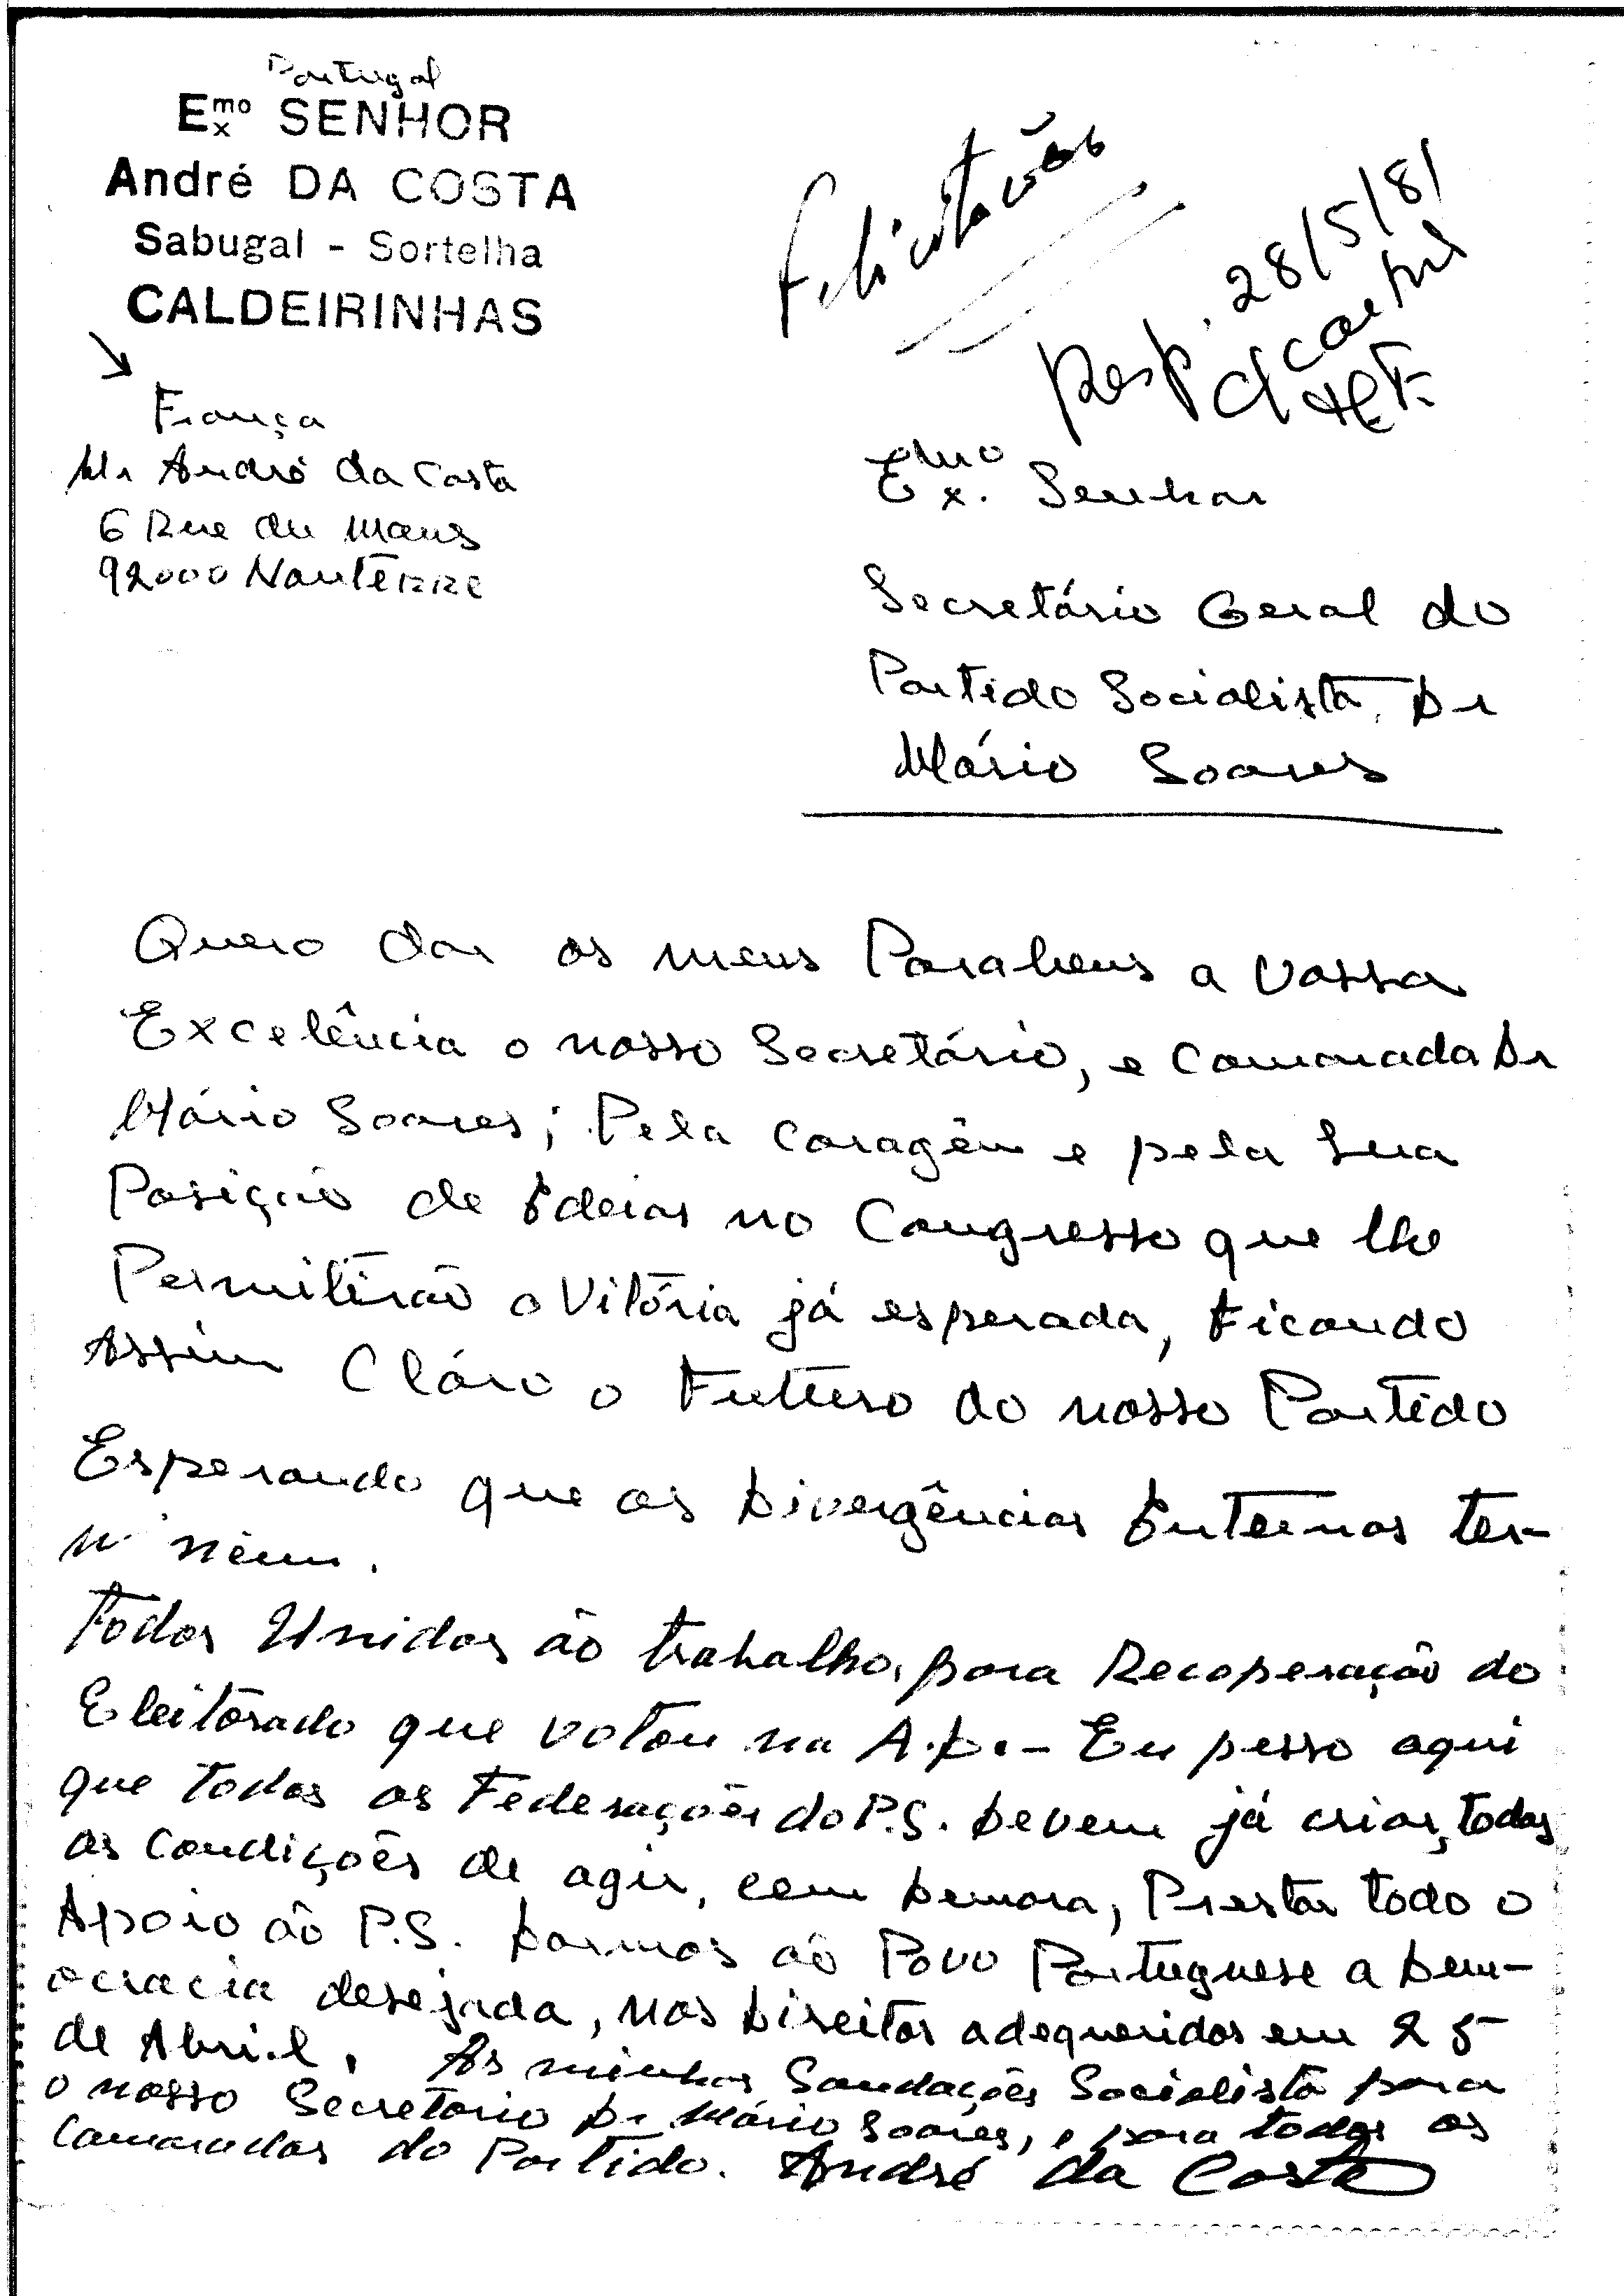 Portugal
Exmo SENHOR
André DA COSTA
Sabugal - Sortelha
CALDEIRINHAS
França
Mr André da Costa
6 Rue du Mans
92000 Nanterre
Felicitações
Resp. 28/5/81
Exmo. Senhor
Secretário Geral do
Partido Socialista, Dr
Mário Soares
Quero dar os meus Parabens a Vossa
Excelência o nosso Secretário, e Camarada Dr
Mário Soares; Pela Coragêm e pela Sua
Posição de Ideias no Congresso que lhe
Permitirão a Vitória já esperada, Ficando
Assim Cláro o Futuro do nosso Partido
Esperando que as Divergências Internas ter-
minem.
Todos Unidos ão trabalho, para Recoperação do
Eleitorado que votou na A.D. - Eu pesso aqui
que todas as Federações do P.S. Devem já criar, todas
as Condições de agir, sem Demora, Prestar todo o
Apoio ão P.S. Darmos aô Povo Portuguese a Dem-
ocracia desejada, nos Direitos adequeridos em 25
de Abril. As minhas Saudações Socialista para
o nosso Secretario Dr Mário Soares, e para todos os
Camaradas do Partido. André da Costa